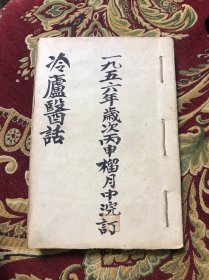 一九五六年歲次丙申榴月中浣訂
冷廬醫話